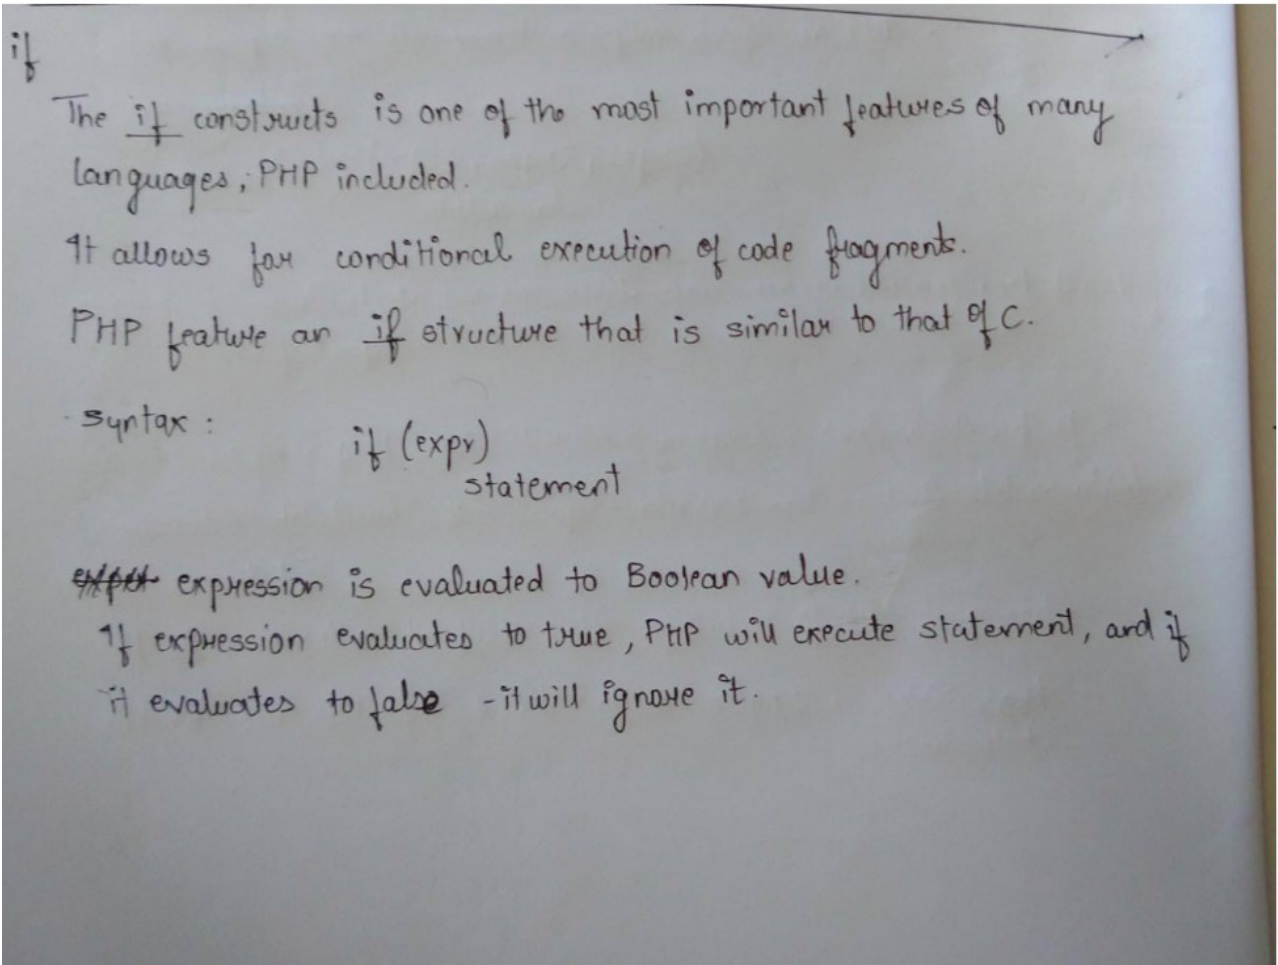 if
The if constructs is one of the most important features of many
languages, PHP included.
It allows for conditional execution of code fragments.
PHP feature an if structure that is similar to that of C.
Syntax :
if (expr)
statement
expression is evaluated to Boolean value.
If expression evaluates to true, PHP will execute statement, and if
it evaluates to false - it will ignore it.